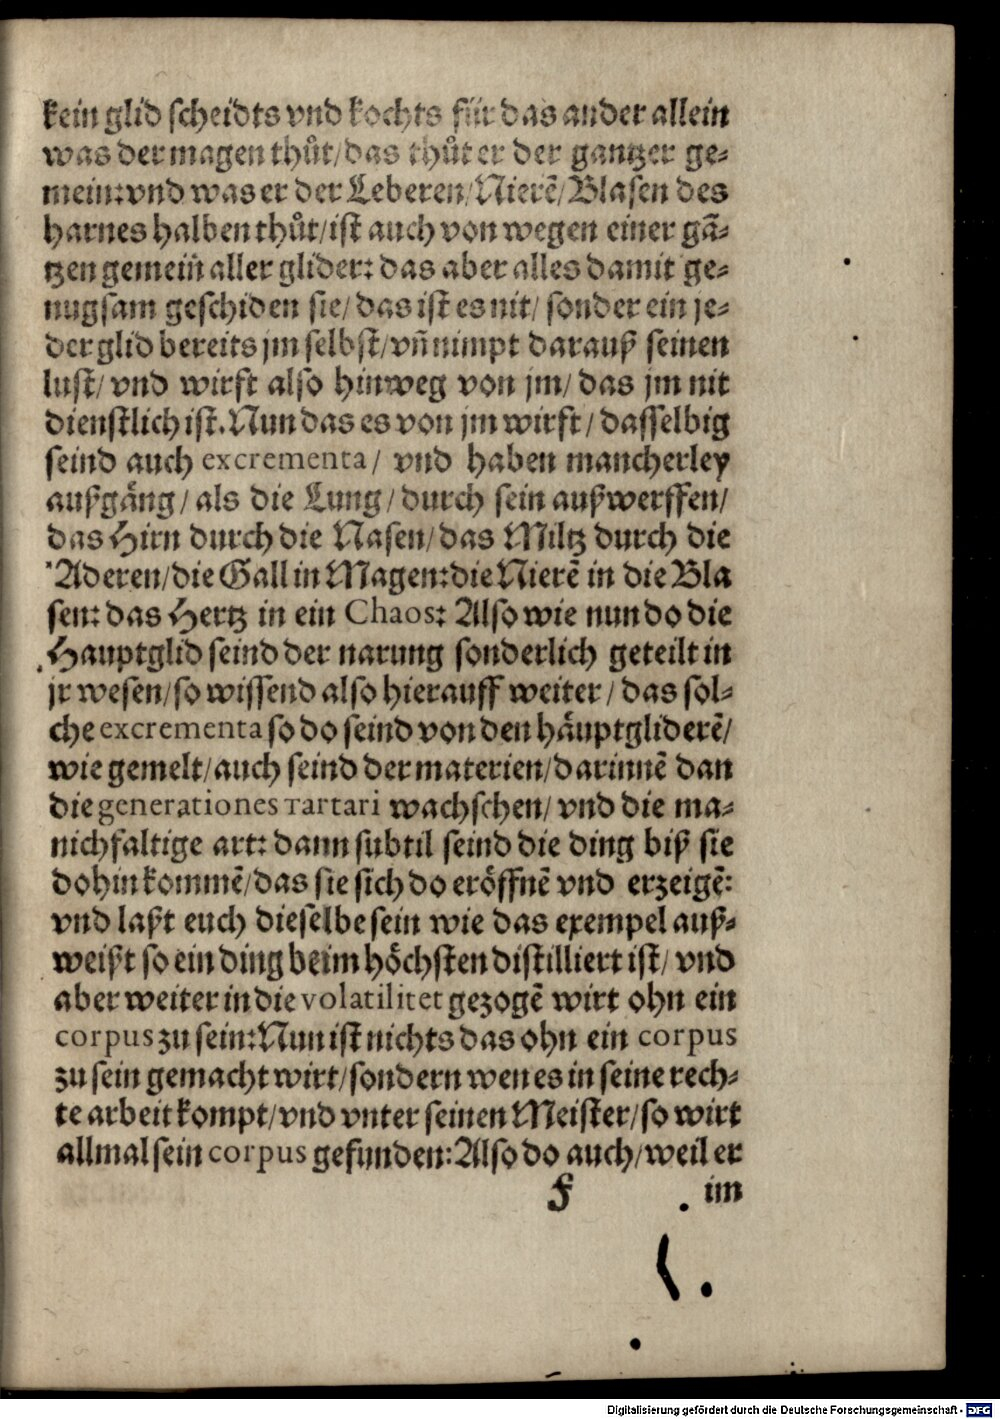 kein glid scheidts vnd kochts für das ander allein
was der magen thůt/das thůt er der gantzer ge⸗
mein:vnd was er der Leberen/Nierẽ/Blasen des
harnes halben thůt/ist auch von wegen einer gã⸗
tzen gemein aller glider: das aber alles damit ge⸗
nugsam geschiden sie/das ist es nit/ sonder ein je⸗
der glid bereits jm selbst/vñ nimpt darauß seinen
lust/ vnd wirft also hinweg von jm/ das jm nit
dienstlich ist. Nun das es von jm wirft/ dasselbig
seind auch excrementa/ vnd haben mancherley
außgäng/ als die Lung/durch sein außwerffen/
das Hirn durch die Nasen/das Miltz durch die
Aderen/die Gall in Magen:die Nierẽ in die Bla
sen: das Hertz in ein Chaos: Also wie nun do die
Hauptglid seind der narung sonderlich geteilt in
jr wesen/so wissend also hierauff weiter/ das sol⸗
che excrementa so do seind von den häuptgliderẽ/
wie gemelt/auch seind der materien/darinnẽ dan
die generationes Tartari wachschen/ vnd die ma⸗
nichfaltige art: dann subtil seind die ding biß sie
dohin kommẽ/das sie sich do eröffnẽ vnd erzeigẽ:
vnd laßt euch dieselbe sein wie das exempel auß⸗
weißt so ein ding beim höchsten distilliert ist/ vnd
aber weiter in die volatilitet gezogẽ wirt ohn ein
corpus zu sein:Nun ist nichts das ohn ein corpus
zu sein gemacht wirt/sondern wen es in seine rech⸗
te arbeit kompt/vnd vnter seinen Meister/so wirt
allmal sein corpus gefunden:Also do auch/weil er
F im
Digitalisierung gefördert durch die Deutsche Forschungsgemeinschaft - DFG